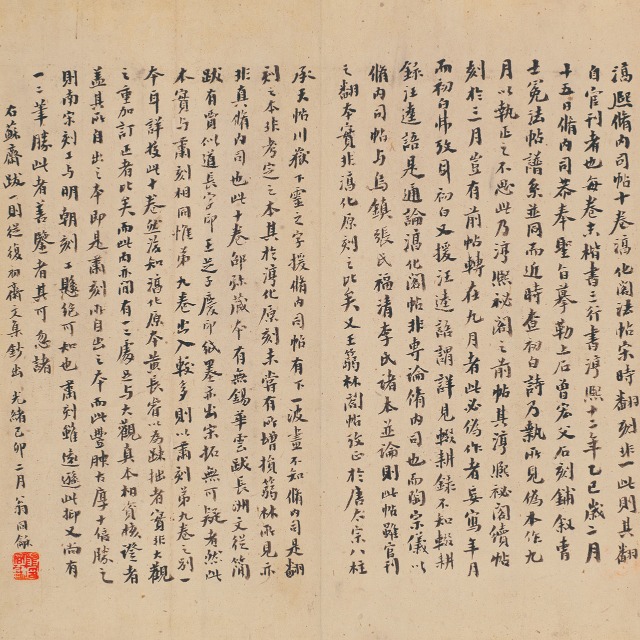 淳熙脩内司帖十卷淳化閣法帖宋時翻刻非一此則其翻
自官刊者也每卷末楷書三行書淳熙十二年乙巳歲二月
十五日脩内司恭奉聖旨摹勒上石曾宏父石刻鋪敘曹
士冕法帖譜系並同而近時查初白詩乃執所見偽本作九
月以執正之不思此乃淳熙祕閣之前帖其淳熙祕閣續帖
刻於三月豈有前帖轉在九月者此必偽作者妄寫年月
而初白弗攷耳初白又援汪逵語謂詳見輟耕錄不知輟耕
錄汪逵語是通論淳化閣帖非專論脩内司也而陶宗儀以
脩内司帖与烏鎮張氏福清李氏諸本並論則此帖雖官刊
之翻本實非淳化原刻之比矣又王蒻林閣帖攷正於唐太宗八柱
承天帖川嶽下靈之字援脩内司帖有下一波盡不知脩内司是翻
刻之本非考定之本其於淳化原刻未嘗有所增損蒻林所見亦
非真脩内司也此十卷邵弥藏本有無錫華雲跋長洲文從簡
跋有賈似道長字印王芝子慶印紙墨亦出宋拓無可疑者然此
本實与肅刻相同惟第九卷出入較多則以肅刻第九卷之別一
本耳詳校此十卷然后知淳化原本黄長睿以為疎拙者實非大觀
之重加訂正者比矣而此内亦間有一二處與大觀真本相資核證者
蓋其所自出之本即是肅刻所自出之本而此豐腴大厚十倍勝之
則南宋刻工与明朝刻工懸絕可知也肅刻雖遠遜此抑又尚有
一二筆勝此者善鑒者其可忽諸
右蘇齋跋一則從復初齋文集鈔出 光緒己卯二月翁同龢